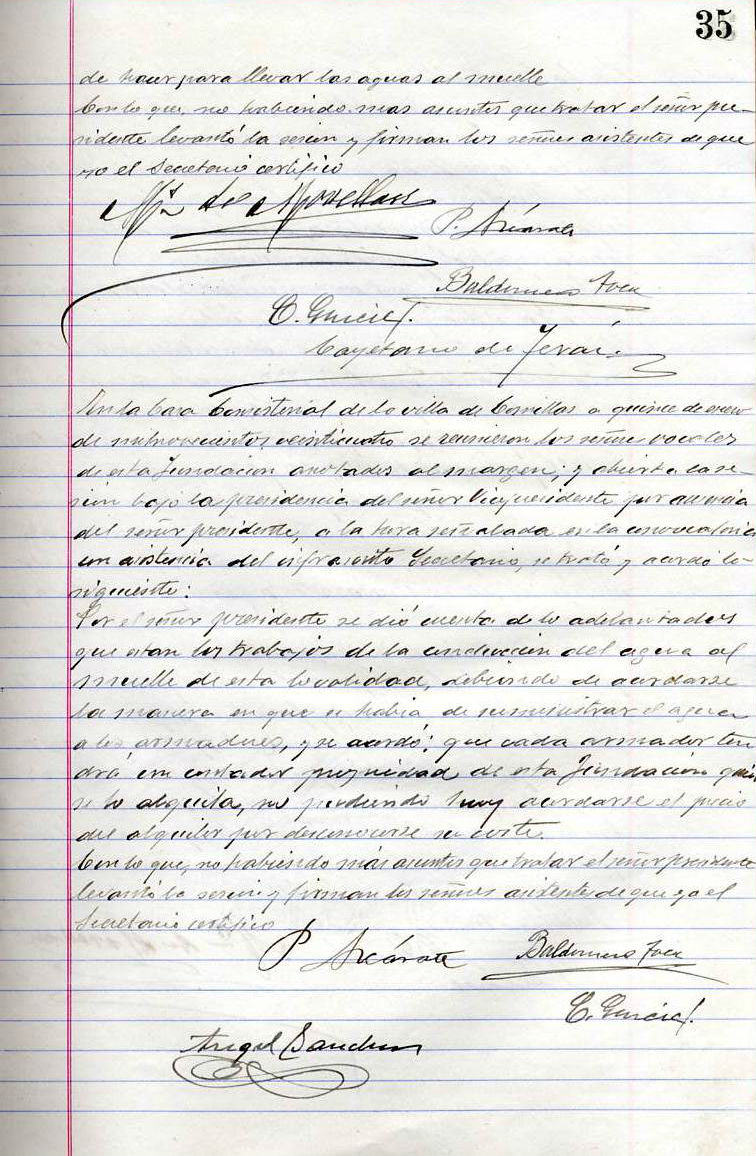 35
de hacer para llevar las aguas al muelle
Con lo que, no habiendo mas asuntos que tratar el señor pre-
sidente levantó la sesion y firman los señores asistentes de que
yo el Secretario certifico
Mˢ de Movellan
P. Azcárate
Baldomero Toca
C. García
Cayetano de
En la Casa Consistorial de la villa de Comillas a quince de enero
de mil novecientos veinticuatro se reunieron los señores vocales
de esta Fundacion anotados al margen; y abierta la se-
sion bajo la presidencia del señor Vicepresidente por ausencia
del señor presidente, a la hora señalada en la convocatoria
con asistencia del infrascrito Secretario, se trató y acordó lo
siguiente:
Por el señor presidente se dió cuenta de lo adelantados
que estan los trabajos de la conduccion del agua al
muelle de esta localidad, debiendo de acordarse
la manera en que se habia de suministrar el agua
a los armadores, y se acordó: que cada armador ten
drá un contador propiedad de esta Fundación quien
se lo alquila, no pudiendo hoy acordarse el precio
del alquiler por desconocerse su coste.
Con lo que, no habiendo más asuntos que tratar el señor presidente
levantó la sesion y firman los señores asistentes de que yo el
Secretario certifico
P Azcárate
Baldomero Toca
C. García
Angel Sanchez